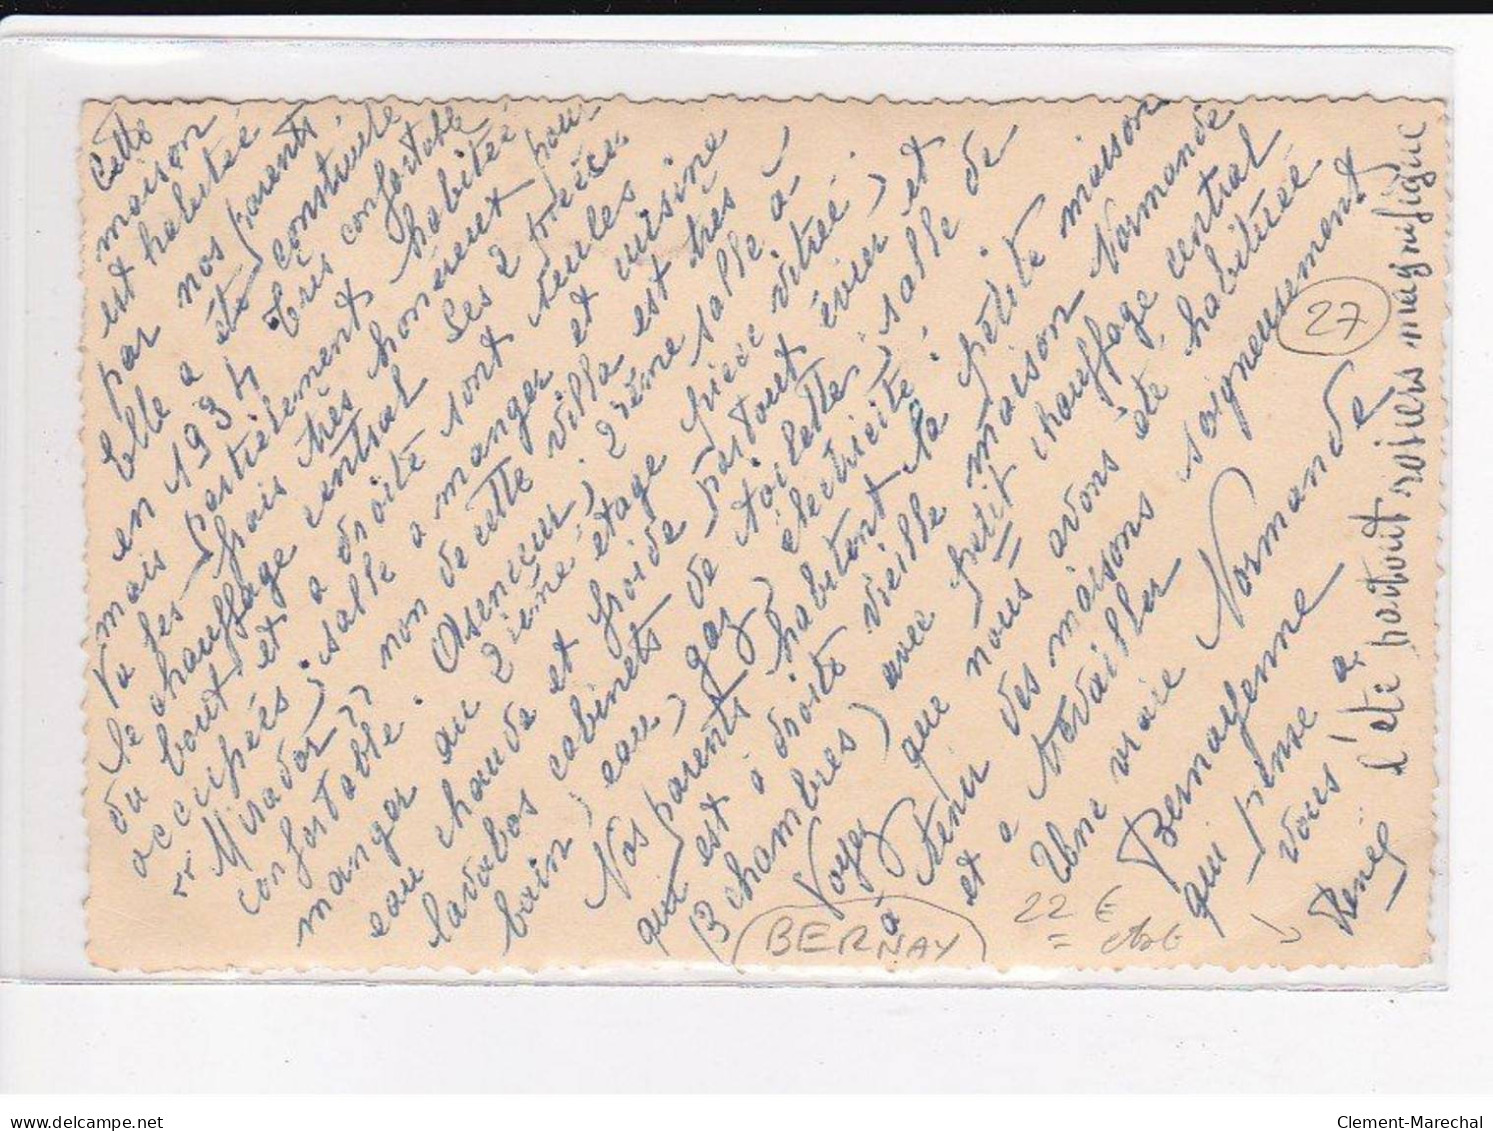 Cette
maison
est habitée
par nos parents.
Elle a été construite
en 1934 très confortable
mais partiellement habitée
Vu les frais très honéreux pour
le chauffage central les 2 pièces
du bout et à droite sont seules
occupées; salle à manger et cuisine
"Mirador" non de cette villa est très
confortable. Asenceur; 2ième salle à
manger au 2ième étage pièce vitrée;
eau chaude et froide partout évier et
lavabos cabinets de toilette; salle de
bain; eau; gaz; électricité.
Nos parents habitent la petite maison
qui est à droite vieille maison Normande
(3 chambres) avec petit chauffage central
Voyez que nous avons été habituée
à tenir des maisons soigneusement
et à travailler
Une vraie Normande
Bernayenne
qui pense à
vous
Renée
l'été partout rosiers magnifique
27
BERNAY
22 €
delcampe.net
Clement-Marechal